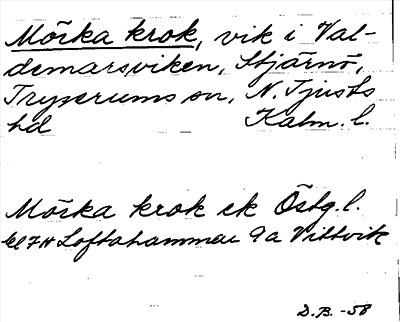 Mörka krok, vik i Val-
demarsviken, Stjärnö,
Tryserums sn, N. Tjusts
hd Kalm. l.
Mörka krok ek Östg. l.
Loftahammar 9a Vittvik
D.B. -58